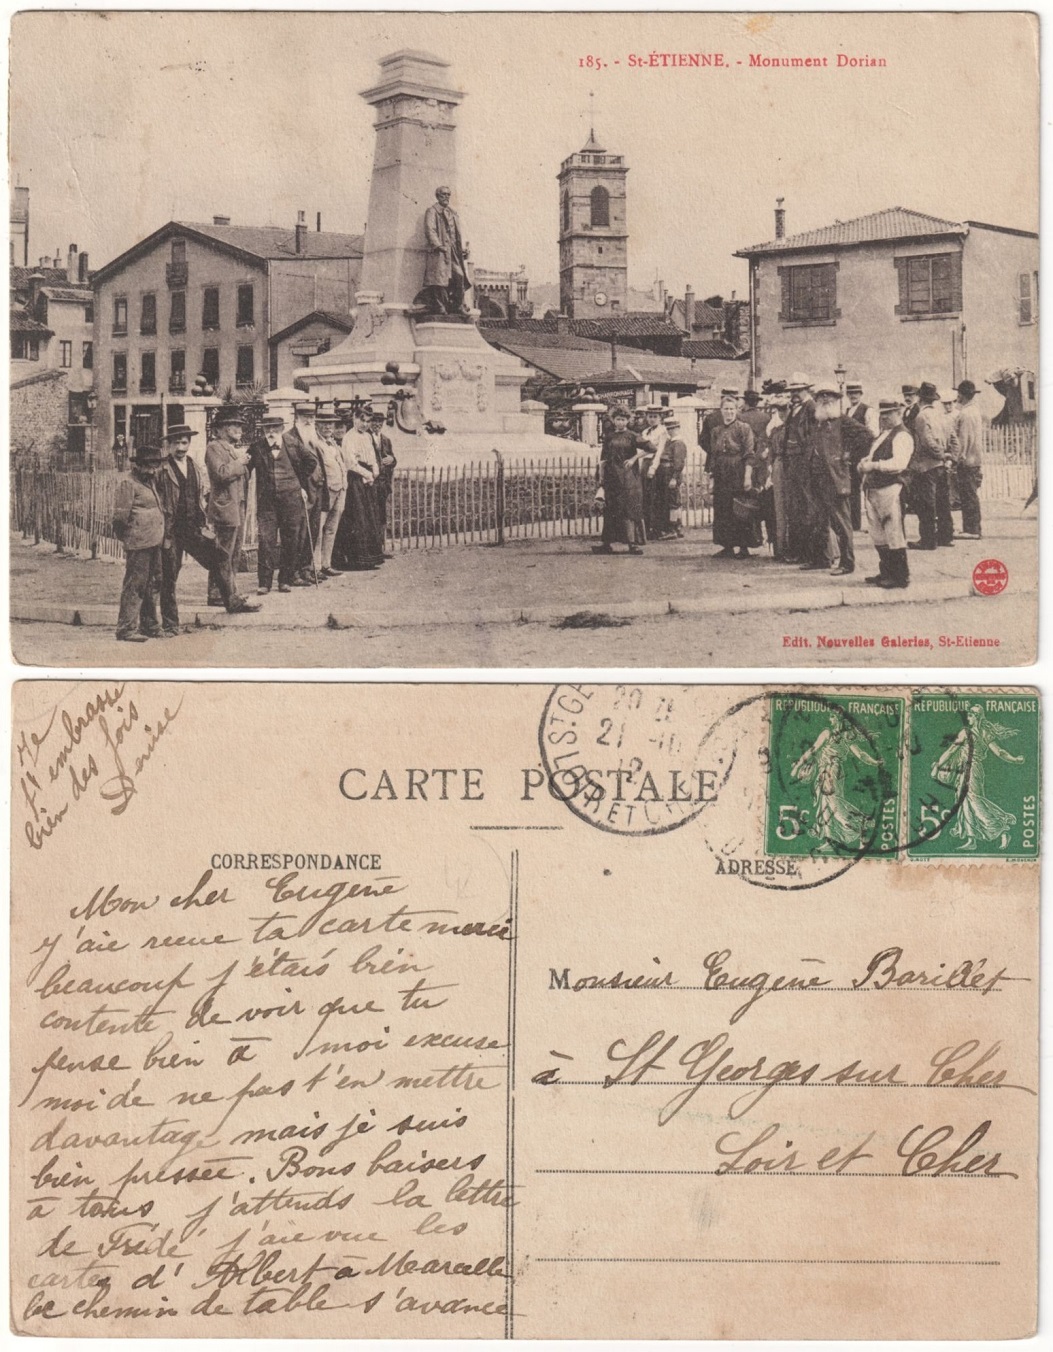 185. - St-ÉTIENNE. - Monument Dorian
Edit. Nouvelles Galeries, St-Etienne
Je
t'embrasse
bien des fois
Denise
CARTE POSTALE
20
21 -10
12
LOIR ET CHER
RÉPUBLIQUE FRANÇAISE
5c
POSTES
RÉPUBLIQUE FRANÇAISE
5c
POSTES
CORRESPONDANCE
ADRESSE
Mon cher Eugène
j'aie recue ta carte merci
beaucoup j'étais bien
contente de voir que tu
pense bien à moi excuse
moi de ne pas t'en mettre
davantage mais je suis
bien pressée. Bons baisers
à tous j'attends la lettre
de Frédé j'aie vue les
cartes d'Albert à Marcelle
le chemin de table s'avance
Monsieur Eugène Barillet
à St Georges sur Cher
Loir et Cher